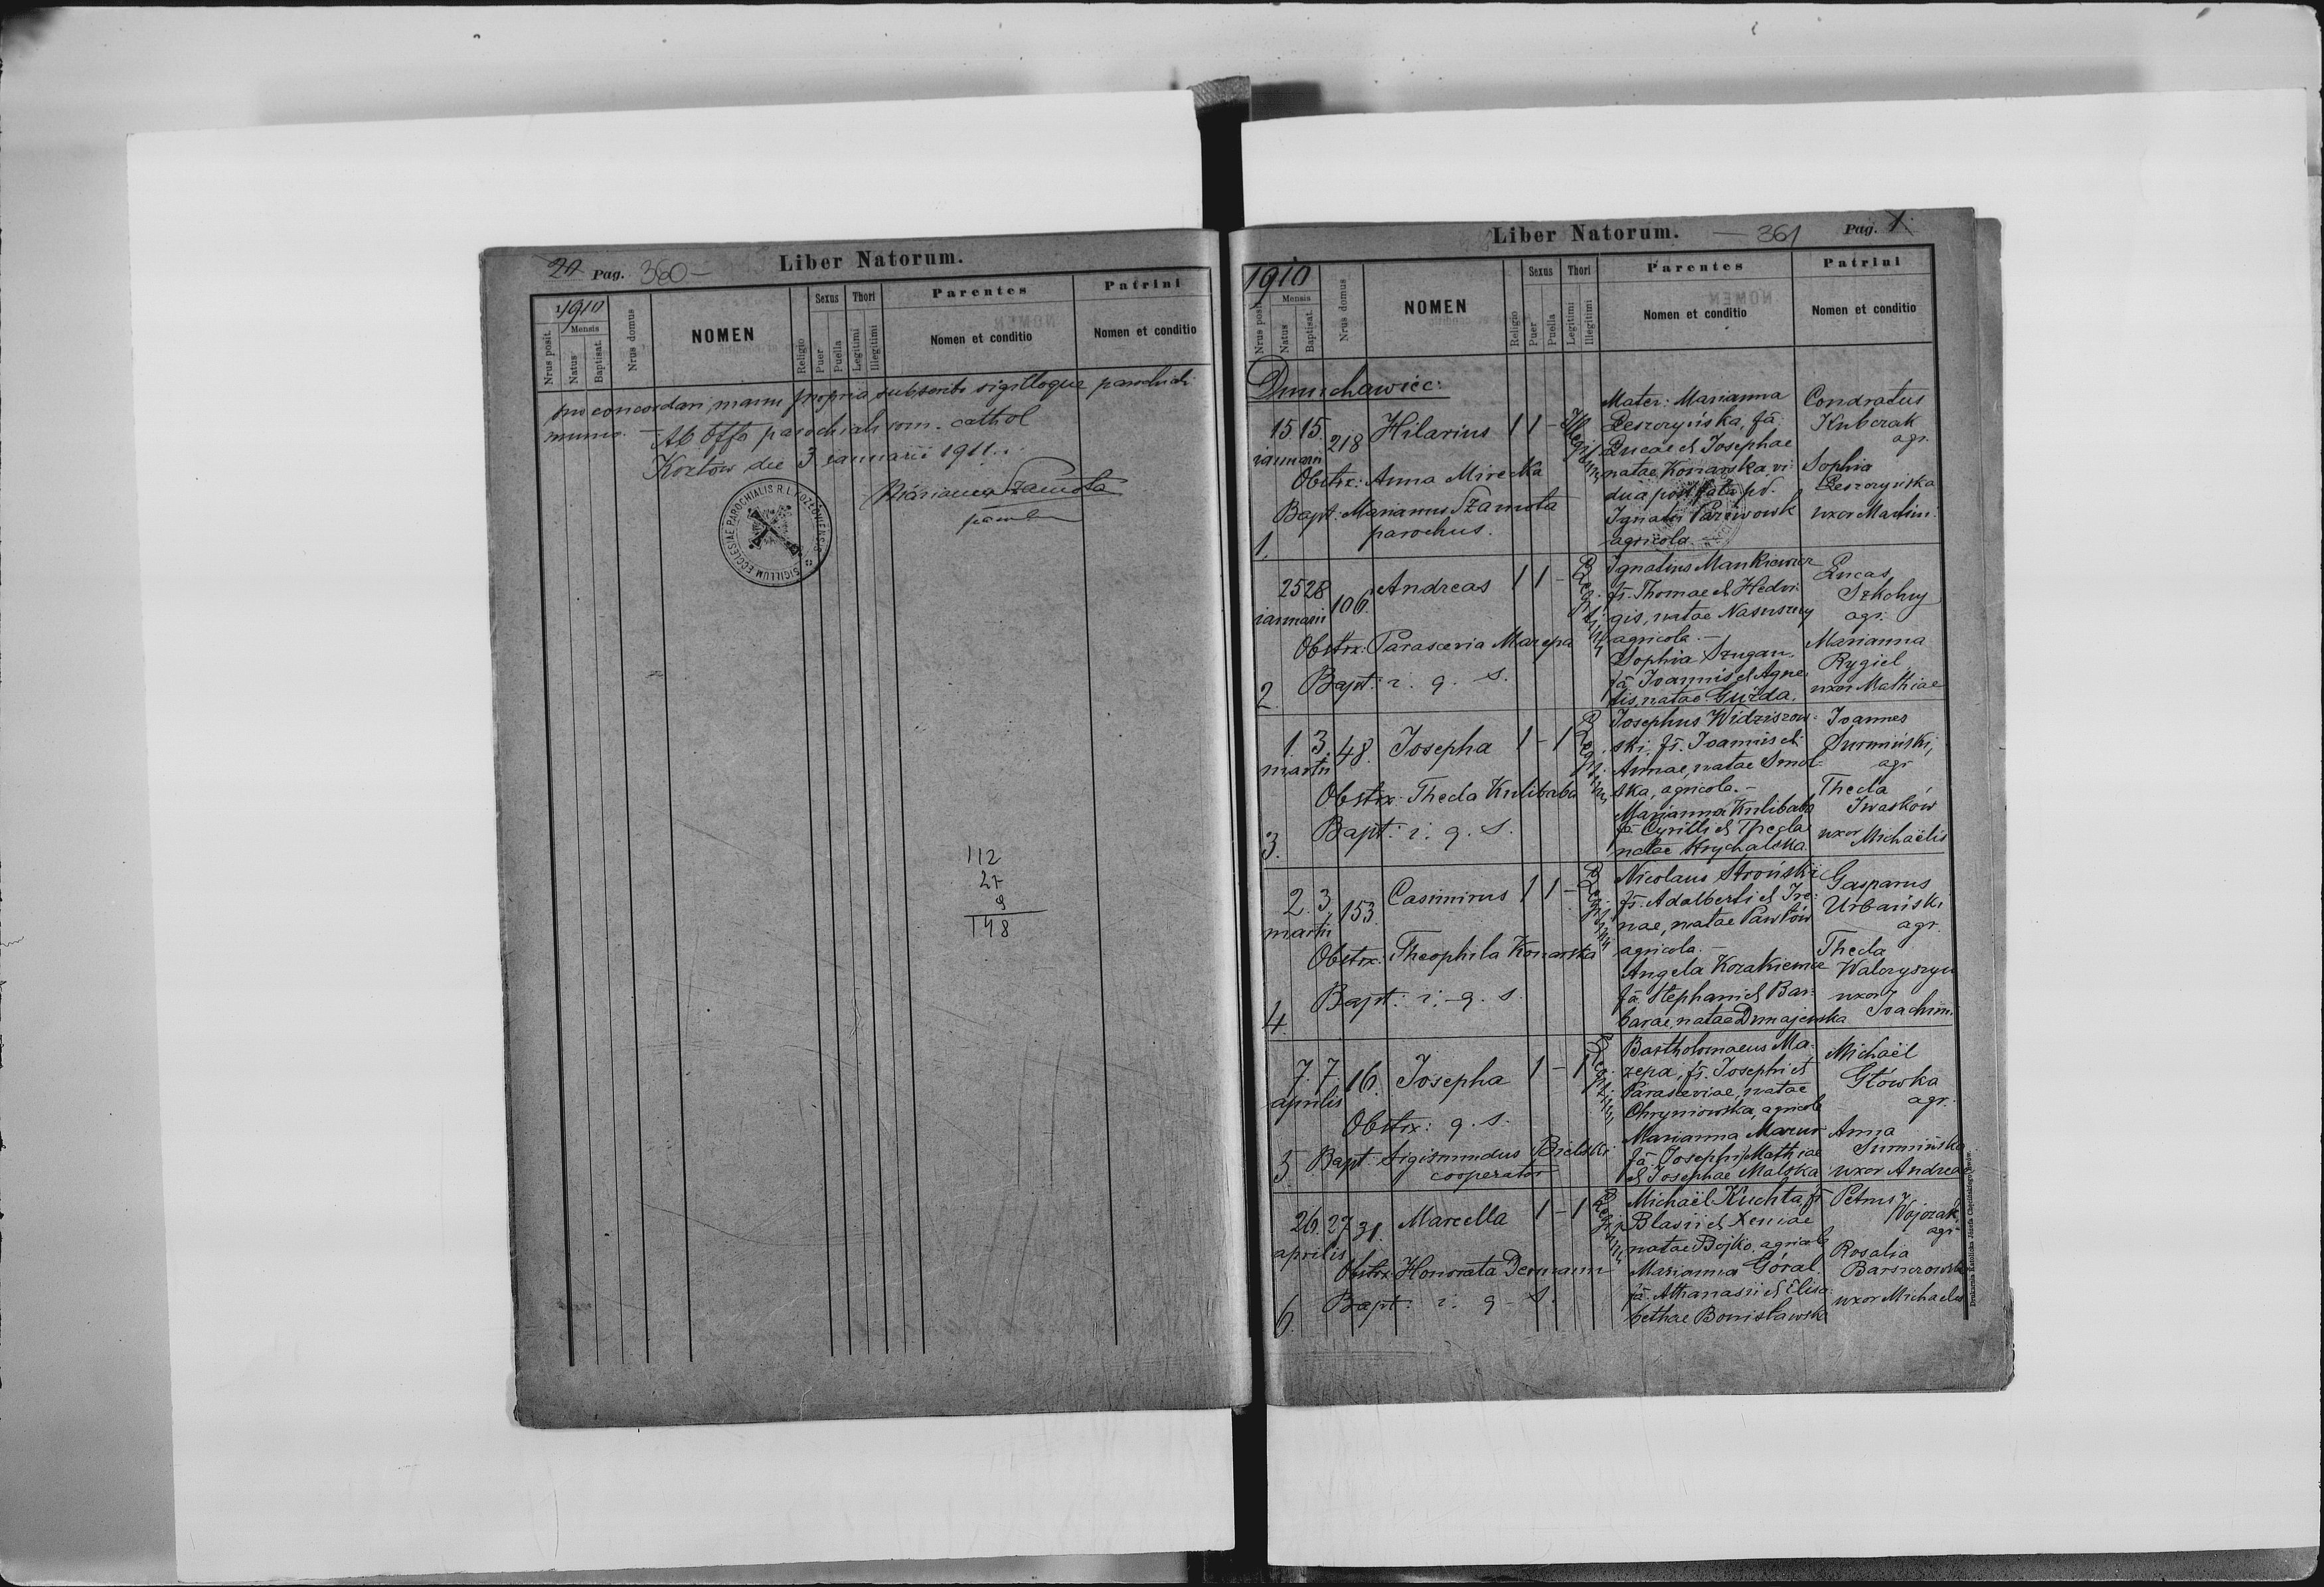 20 Pag. 360 —
Liber Natorum.
1910
Nrus posit.
Mensis
Natus
Baptisat.
Nrus domus
NOMEN
Religio
Sexus
Puer
Puella
Thori
Legitimi
Illegitimi
Parentes
Nomen et conditio
Patrini
Nomen et conditio
pro concordari manu propria subscribo sigilloque parochiali
munio. — Ab offo parochiali rom. cathol
Kozłow die 3 ianuarii 1911.
Marianus Szamota
SIGILLUM ECCLESIAE PAROCHIALIS R. L. KOZŁOVIENSIS
112
27
9
148
Liber Natorum. — 361 Pag. 1.
1910
Nrus posit.
Mensis
Natus
Baptisat.
Nrus domus
NOMEN
Religio
Sexus
Puer
Puella
Thori
Legitimi
Illegitimi
Parentes
Nomen et conditio
Patrini
Nomen et conditio
Dmuchawiec:
1. 15 15. ianuarii 218 Hilarius 1 1 – Illegitim
Obstrx: Anna Mirecka
Bapt: Marianus Szamota
parochus.
Mater: Marianna
Leszczyńska, fa.
Lucae et Josephae
natae Konarska vi
dua post fata pd.
Ignatii
agricola.
Condratus
Kubczak
agr.
Sophia
Leszczyńska
uxor Martini
2. 25 28 ianuarii 106. Andreas 1 1 – Legitim
Obstrx: Parascevia Mazepa
Bapt: i. q. s.
Ignatius Mankiewicz
fs. Thomae et Hedvi
gis, natae Nasuszny
agricola. —
Sophia Szugan,
fa Joannis et Agne
tis, natae Guzda.
Lucas
Szkolny
agr.
Marianna
Rygiel
uxor Mathiae
3. 1. 3. martii 48. Josepha 1 – 1 Legitim
Obstrx: Thecla Kulibaba
Bapt: i. q. s.
Josephus Widziszow
ski, fs. Joannis et
Annae, natae Smol
ska, agricola. —
Marianna Kulibaba
fa Cyrilli et Thecla
natae Strychalska
Joannes
Surmiński,
agr
Thecla
Iwasków
uxor Michaëlis
4. 2. 3. martii 153. Casimirus 1 1 – Legitim
Obstrx: Theophila Konarska
Bapt: i. q. s.
Nicolaus Stroński
fs. Adalberti et Ire
nae, natae Pawłów
agricola. —
Angela Kozakiewicz
fa Stephani et Bar
barae, natae Dunajewska
Gasparus
Urbański
agr.
Thecla
Waleryszyn
uxor
Joachimi
5. 7. 7. aprilis 16. Josepha 1 – 1 Legitim
Obstrx: q. s.
Bapt: Sigismundus Bielski
cooperator
Bartholomaeus Ma
zepa, fs. Josephi et
Parasceviae, natae
Chryniowska, agricola
Marianna Mazur
fa Josephi Mathiae
et Josephae Malska
Michaël
Główka
agr.
Anna
Surmińska
uxor Andreae
6. 26. 27 aprilis 31. Marcella 1 – 1 Legitim
Obstrx: Honorata Dermann
Bapt: i. q. s.
Michaël Kuchta fs
Blasii et Xeniae
natae Bojko, agricola
Marianna Góral
fa Athanasii et Elisa
bethae Bonisławska
Petrus
Wojczak
agr
Rosalia
Barszczowska
uxor Michaelis